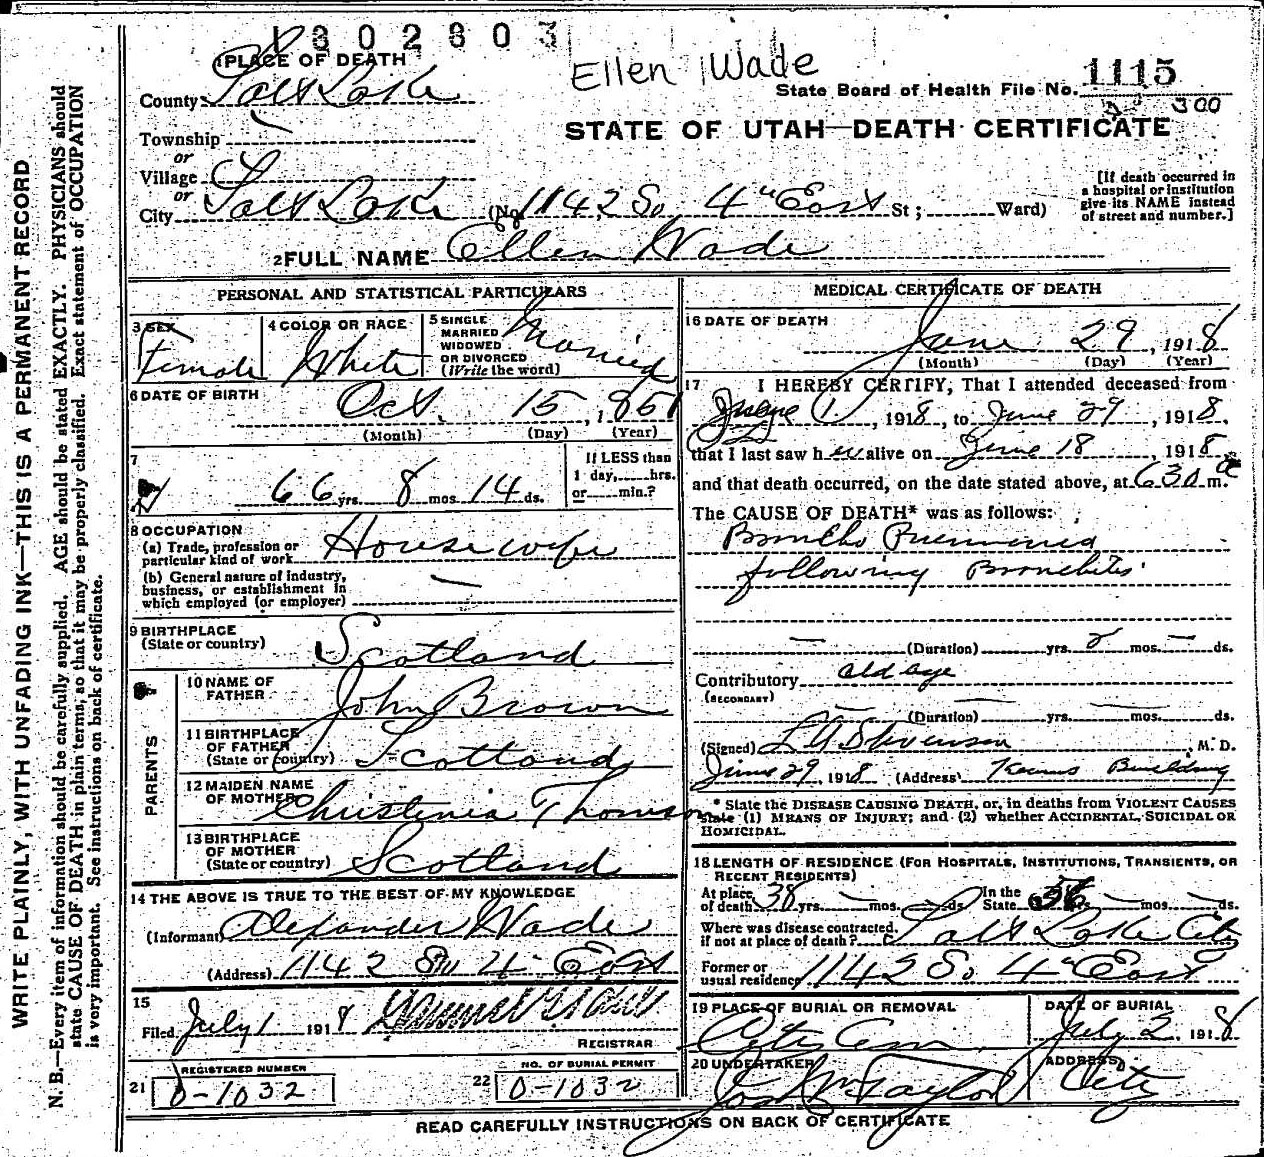 1302803
Ellen Wade
1 PLACE OF DEATH
County Salt Lake
State Board of Health File No. 1115
300
Township
STATE OF UTAH—DEATH CERTIFICATE
or
Village
or
City Salt Lake (No. 1142 So. 4" East St; Ward)
[If death occurred in
a hospital or institution
give its NAME instead
of street and number.]
2 FULL NAME Ellen Wade
PERSONAL AND STATISTICAL PARTICULARS
3 SEX Female
4 COLOR OR RACE White
5 SINGLE
MARRIED
WIDOWED
OR DIVORCED
(Write the word) Married
6 DATE OF BIRTH Oct. 15, 1851
(Month) (Day) (Year)
7 66 yrs. 8 mos. 14 ds.
If LESS than
1 day, hrs.
or min.?
8 OCCUPATION
(a) Trade, profession or
particular kind of work Housewife
(b) General nature of industry,
business, or establishment in
which employed (or employer)
9 BIRTHPLACE
(State or country) Scotland
PARENTS
10 NAME OF
FATHER John Brown
11 BIRTHPLACE
OF FATHER
(State or country) Scotland
12 MAIDEN NAME
OF MOTHER Christenia Thomson
13 BIRTHPLACE
OF MOTHER
(State or country) Scotland
14 THE ABOVE IS TRUE TO THE BEST OF MY KNOWLEDGE
(Informant) Alexander Wade
(Address) 1142 So 4" East
15
Filed July 1 1918
REGISTRAR
21 REGISTERED NUMBER
0-1032
22 NO. OF BURIAL PERMIT
0-1032
MEDICAL CERTIFICATE OF DEATH
16 DATE OF DEATH
June 29, 1918
(Month) (Day) (Year)
17 I HEREBY CERTIFY, That I attended deceased from
June 1, 1918, to June 29, 1918,
that I last saw her alive on June 18, 1918,
and that death occurred, on the date stated above, at 630 a m.
The CAUSE OF DEATH* was as follows:
Broncho Pneumonia
following Bronchitis
(Duration) yrs. 2 mos. ds.
Contributory old age
(SECONDARY)
(Duration) yrs. mos. ds.
(Signed) L A Stevenson, M. D.
June 29, 1918 (Address) Kearns Building
* State the DISEASE CAUSING DEATH, or, in deaths from VIOLENT CAUSES
state (1) MEANS OF INJURY; and (2) whether ACCIDENTAL, SUICIDAL OR
HOMICIDAL.
18 LENGTH OF RESIDENCE (FOR HOSPITALS, INSTITUTIONS, TRANSIENTS, OR
RECENT RESIDENTS)
At place
of death 38 yrs. mos. ds. In the
State yrs. mos. ds.
Where was disease contracted,
if not at place of death? Salt Lake City
Former or
usual residence 1142 So 4" East
19 PLACE OF BURIAL OR REMOVAL
City Cem
DATE OF BURIAL
July 2, 1918
20 UNDERTAKER
Jos Wm Taylor
ADDRESS
City
READ CAREFULLY INSTRUCTIONS ON BACK OF CERTIFICATE
WRITE PLAINLY, WITH UNFADING INK—THIS IS A PERMANENT RECORD
N. B.—Every item of information should be carefully supplied. AGE should be stated EXACTLY. PHYSICIANS should
state CAUSE OF DEATH in plain terms, so that it may be properly classified. Exact statement of OCCUPATION
is very important. See instructions on back of certificate.